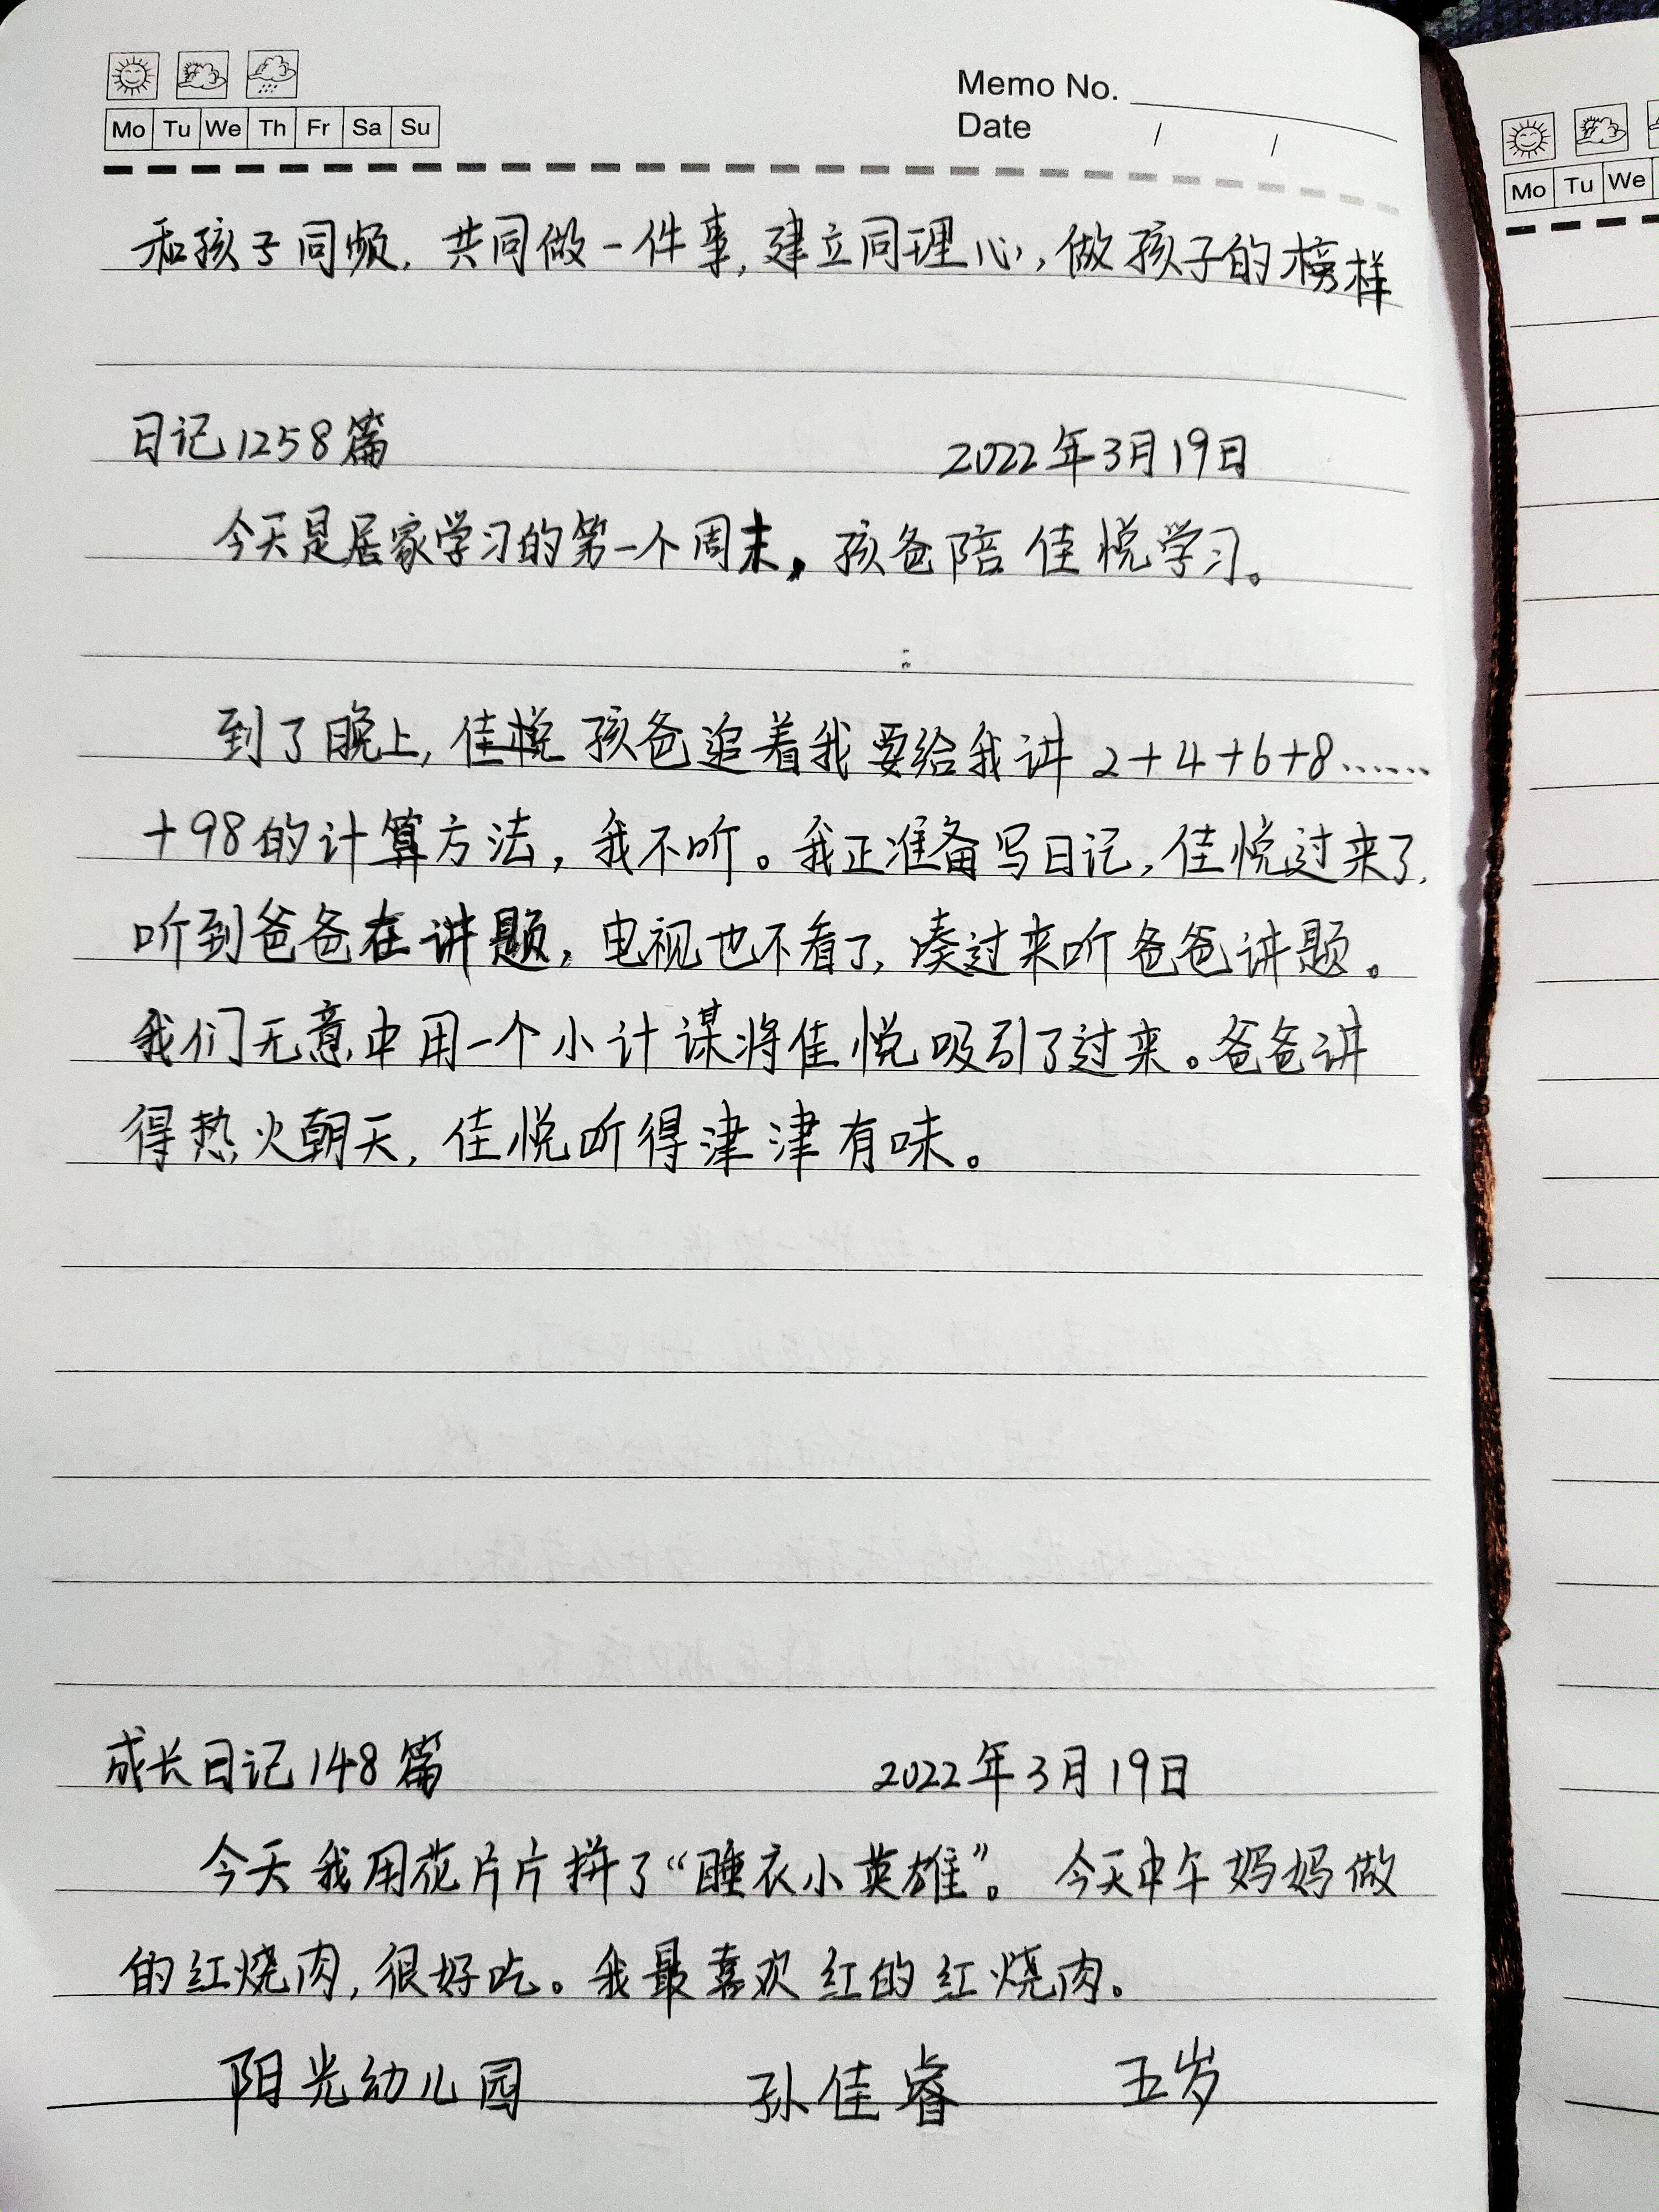 Mo Tu We Th Fr Sa Su
Memo No.
Date / /
和孩子同频，共同做一件事，建立同理心，做孩子的榜样
日记1258篇 2022年3月19日
今天是居家学习的第一个周末，孩爸陪佳悦学习。
到了晚上，佳悦孩爸追着我要给我讲2+4+6+8……
+98的计算方法，我不听。我正准备写日记，佳悦过来了，
听到爸爸在讲题，电视也不看了，凑过来听爸爸讲题。
我们无意中用一个小计谋将佳悦吸引了过来。爸爸讲
得热火朝天，佳悦听得津津有味。
成长日记148篇 2022年3月19日
今天我用花片片拼了“睡衣小英雄”。今天中午妈妈做
的红烧肉，很好吃。我最喜欢红的红烧肉。
阳光幼儿园 孙佳睿 五岁
Mo Tu We